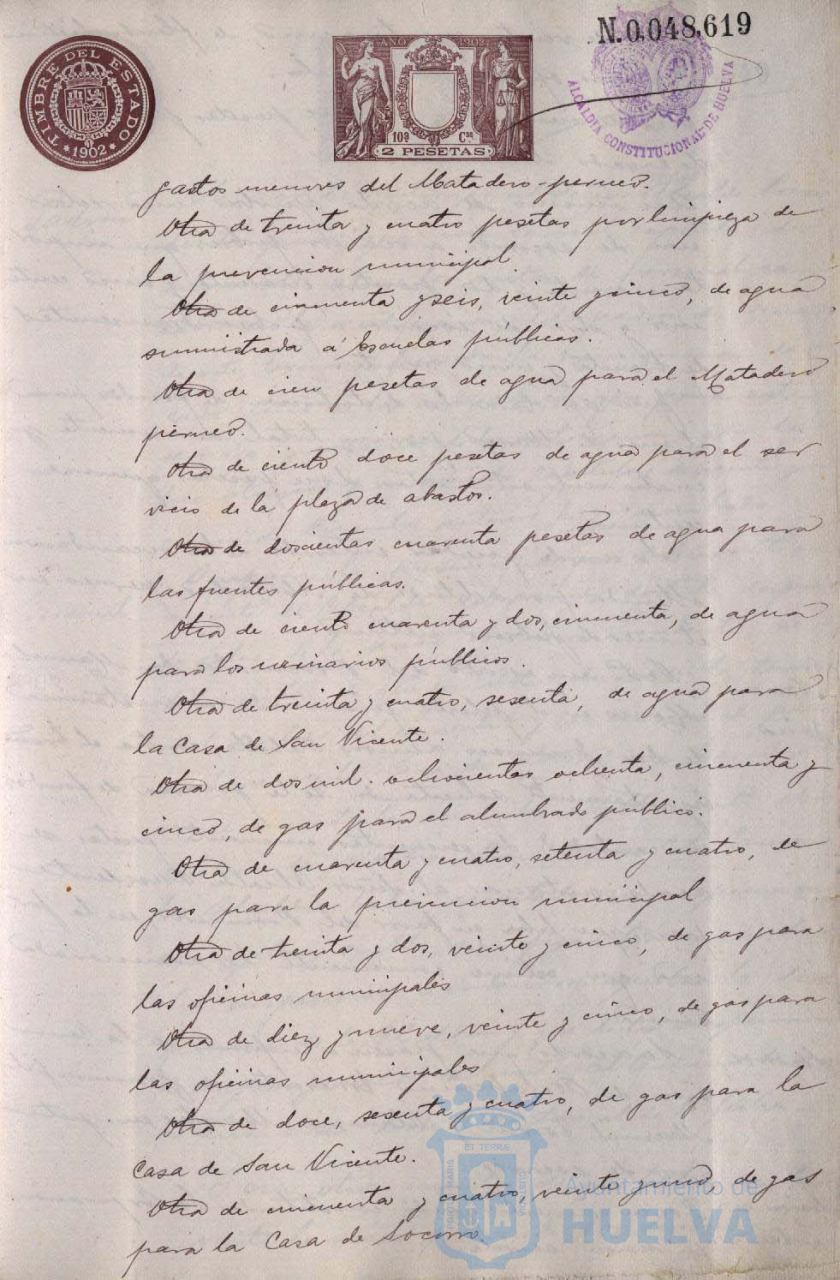 N.0.048.619
TIMBRE DEL ESTADO
*1902*
AÑO 1902
10ª Cse
2 PESETAS
ALCALDIA CONSTITUCIONAL DE HUELVA
gastos menores del Matadero perneo.
Otra de treinta y cuatro pesetas por limpieza de
la prevencion municipal
Otra de cincuenta y seis, veinte y cinco, de agua
suministrada á Escuelas públicas.
Otra de cien pesetas de agua para el Matadero
perneo.
Otra de ciento doce pesetas de agua para el ser
vicio de la plaza de abastos.
Otra de doscientas cuarenta pesetas de agua para
las fuentes públicas.
Otra de ciento cuarenta y dos, cincuenta, de agua
para los urinarios públicos.
Otra de treinta y cuatro, sesenta, de agua para
la Casa de San Vicente.
Otra de dos mil ochocientas ochenta, cincuenta y
cinco, de gas para el alumbrado público.
Otra de cuarenta y cuatro, setenta y cuatro, de
gas para la prevencion municipal
Otra de treinta y dos, veinte y cinco, de gas para
las oficinas municipales
Otra de diez y nueve, veinte y cinco, de gas para
las oficinas municipales
Otra de doce, sesenta y cuatro, de gas para la
Casa de San Vicente.
Otra de cincuenta y cuatro, veinte y una, de gas
para la Casa de Socorro
Ayuntamiento de
HUELVA